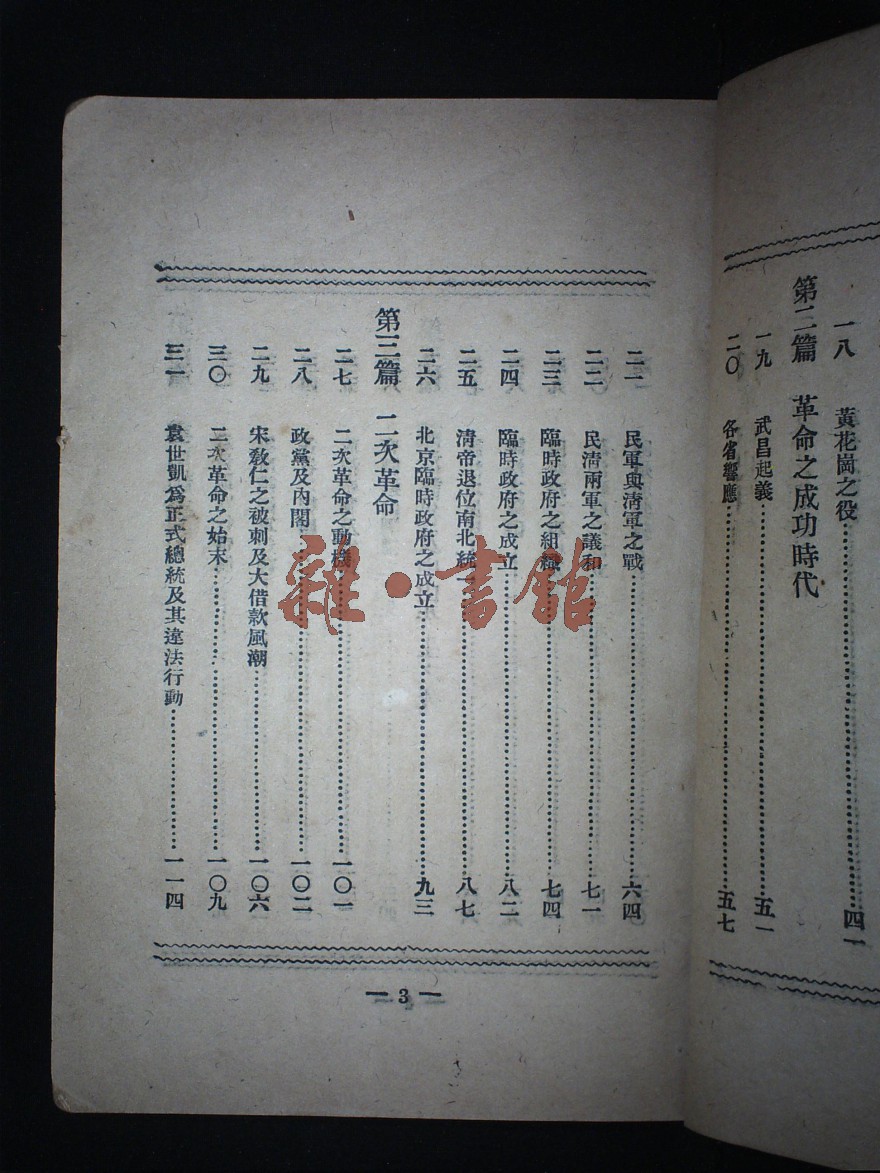 一八 黃花崗之役 四一
第二篇 革命之成功時代
一九 武昌起義 五一
二〇 各省響應 五七
二一 民軍與清軍之戰 六四
二二 民清兩軍之議和 七一
二三 臨時政府之組織 七四
二四 臨時政府之成立 八二
二五 清帝退位南北統一 八七
二六 北京臨時政府之成立 九三
第三篇 二次革命
二七 二次革命之動機 一〇一
二八 政黨及內閣 一〇二
二九 宋敎仁之被刺及大借款風潮 一〇六
三〇 二次革命之始末 一〇九
三一 袁世凱爲正式總統及其違法行動 一一四
— 3 —
雜·書館